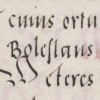 cuius ortu
Boleslaus
Veteres